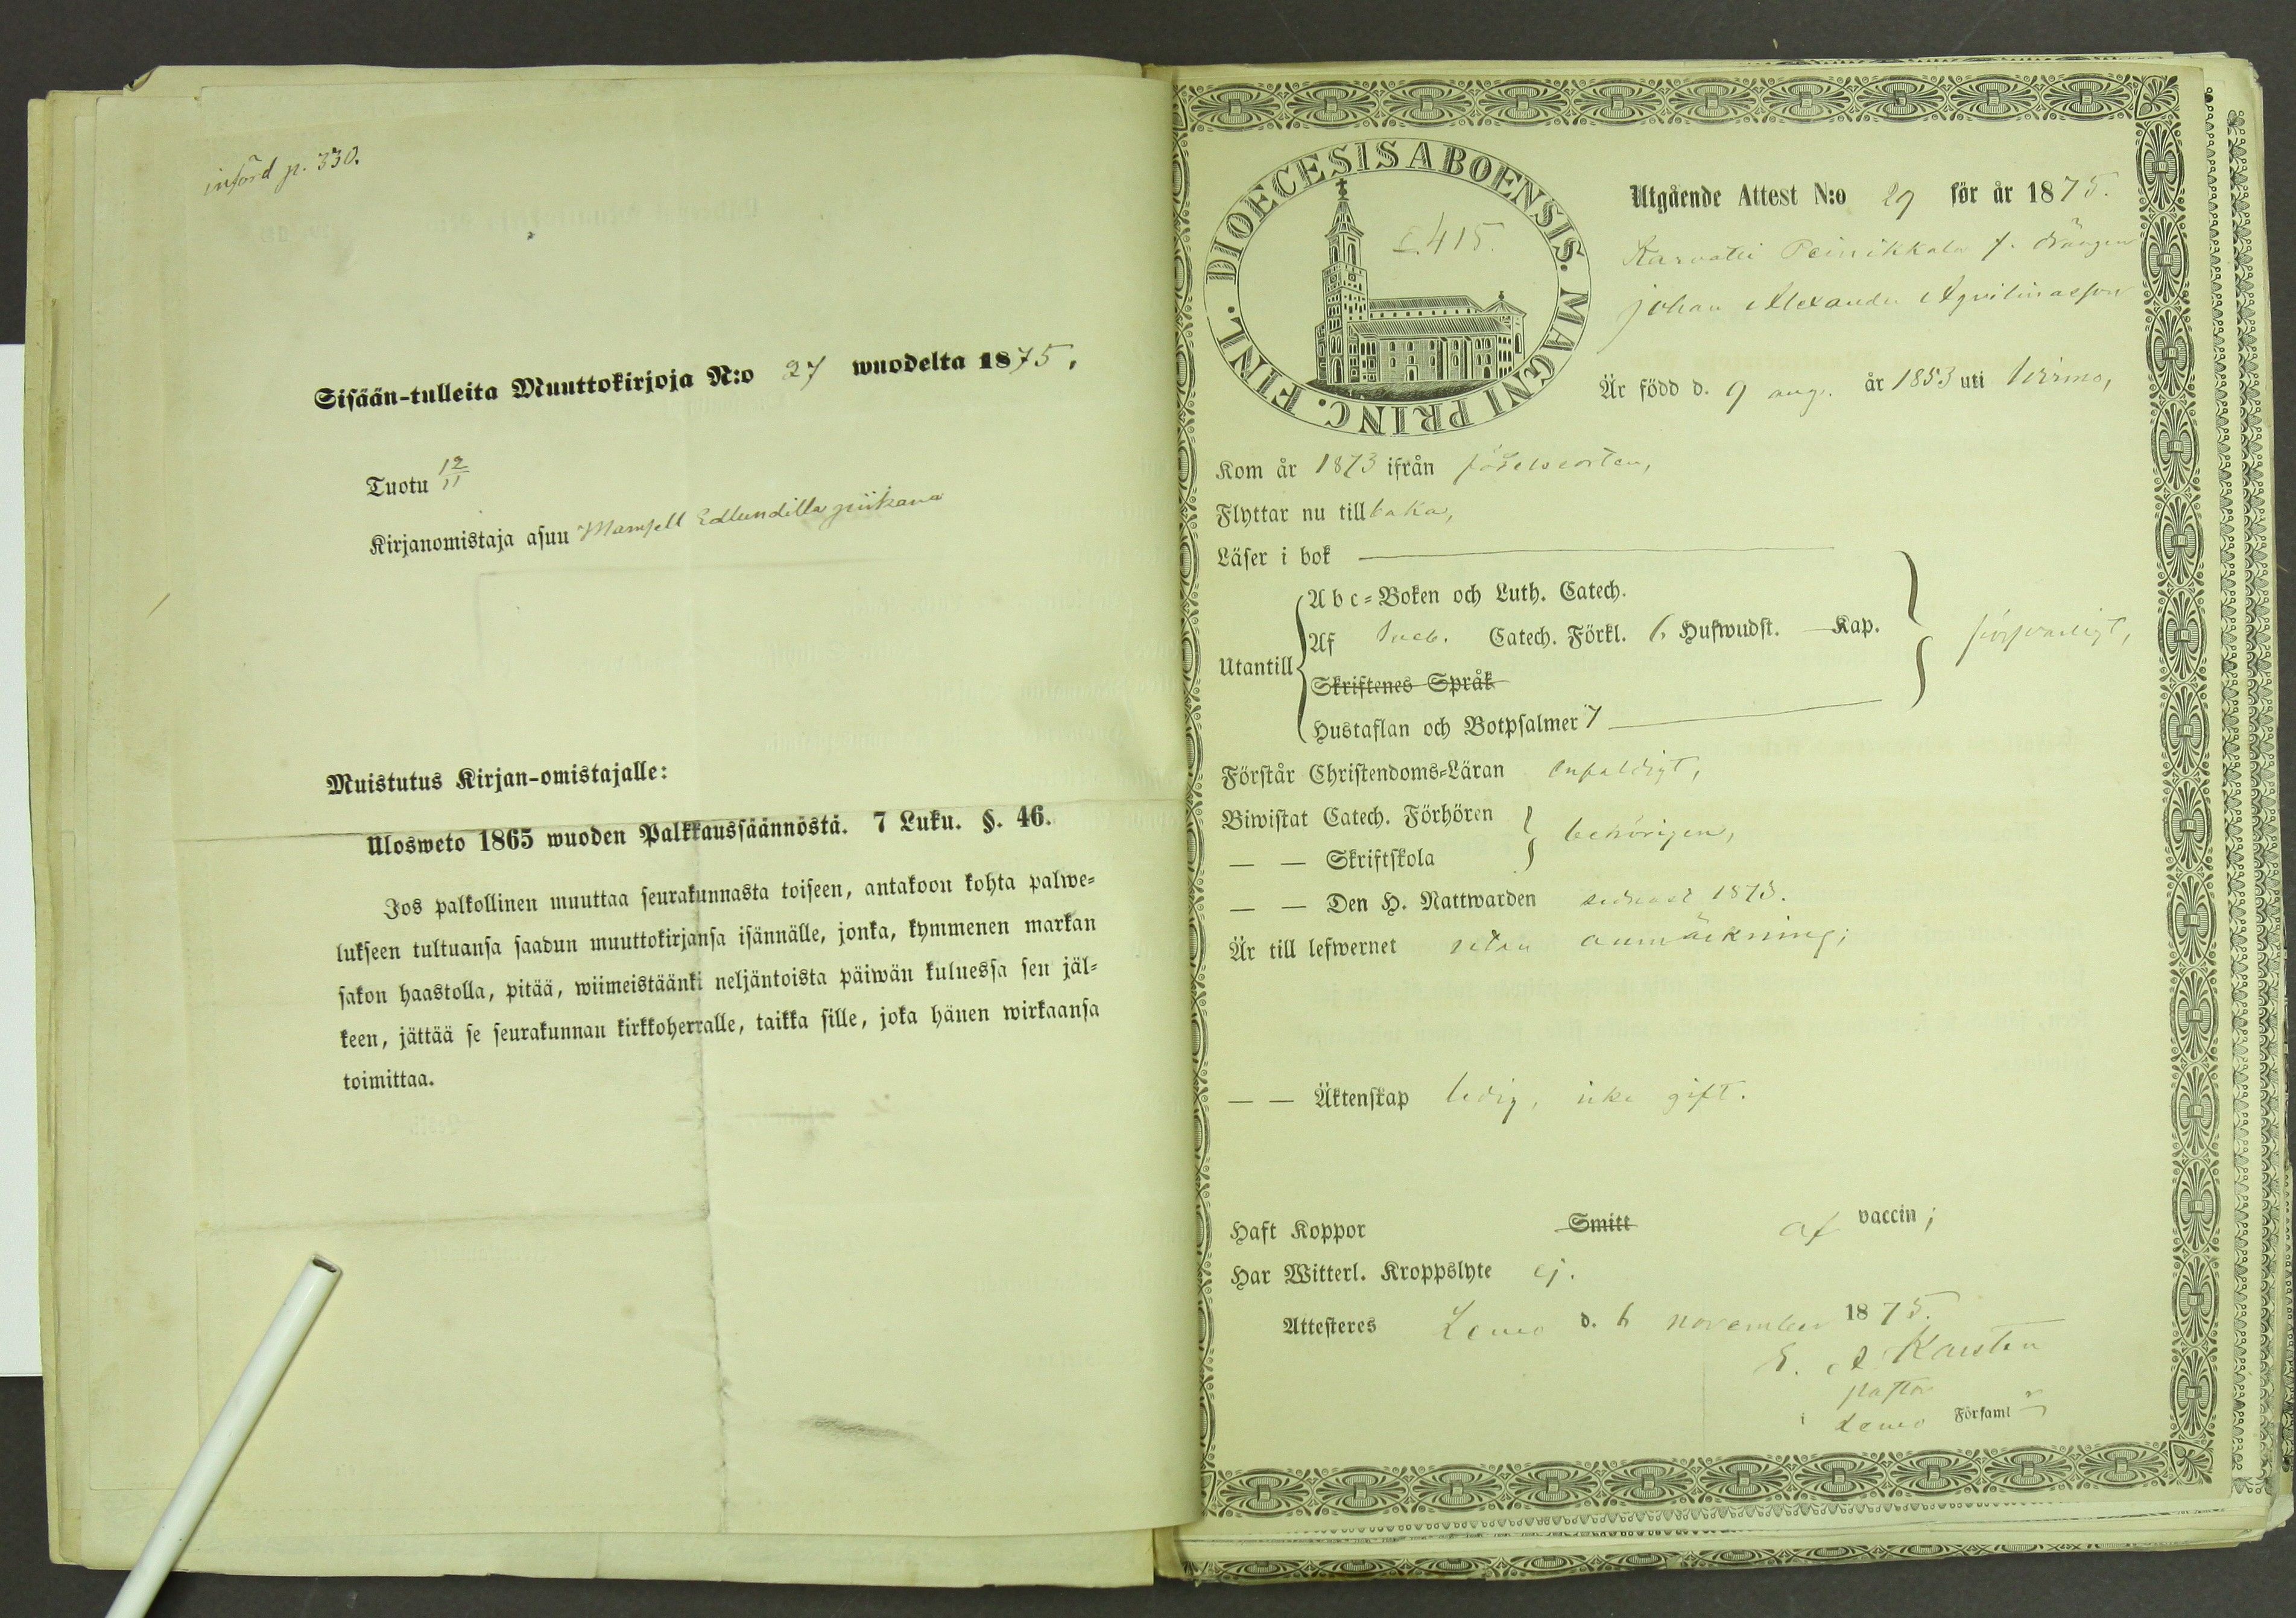 införd p. 330.
Sisään-tulleita Muuttokirjoja N:o 27 wuodelta 1875.
Tuotu 12/11
Kirjanomistaja asuu Mamsell Edlundilla piikana
Muistutus Kirjan-omistajalle:
Ulosweto 1865 wuoden Palkkaussäännöstä. 7 Luku. §. 46.
Jos palkollinen muuttaa seurakunnasta toiseen, antakoon kohta palwe=
lukseen tultuansa saadun muuttokirjansa isännälle, jonka, kymmenen markan
sakon haastolla, pitää, wiimeistäänki neljäntoista päiwän kuluessa sen jäl=
keen, jättää se seurakunnan kirkkoherralle, taikka sille, joka hänen wirkaansa
toimittaa.
DIOECESIS ABOENSIS. MAGNI PRINC. FINL.
415.
Utgående Attest N:o 29 för år 1875.
Karvatti f. drängen
Johan Alexander
Är född d. 9 aug. år 1853 uti Virmo,
Kom år 1873 ifrån födelseorten,
Flyttar nu tillbaka,
Läser i bok
Abc=Boken och Luth. Catech.
Utantill
Af Sveb. Catech. Förkl. 6 Hufwudst. — Kap.
försvarligt,
Skriftenes Språk
Hustaflan och Botpsalmer 7
Förstår Christendoms=Läran enfaldigt,
Biwistat Catech. Förhören
behörigen,
— — Skriftskola
— — Den H. Nattwarden sednast 1875.
Är till lefwernet utan anmärkning;
— — Äktenskap ledig, icke gift.
Haft Koppor Smitt af vaccin;
Har Witterl. Kroppslyte ej.
Attesteres Lemo d. 6 november 1875.
E. A. Karsten
pastor
i Lemo Församl